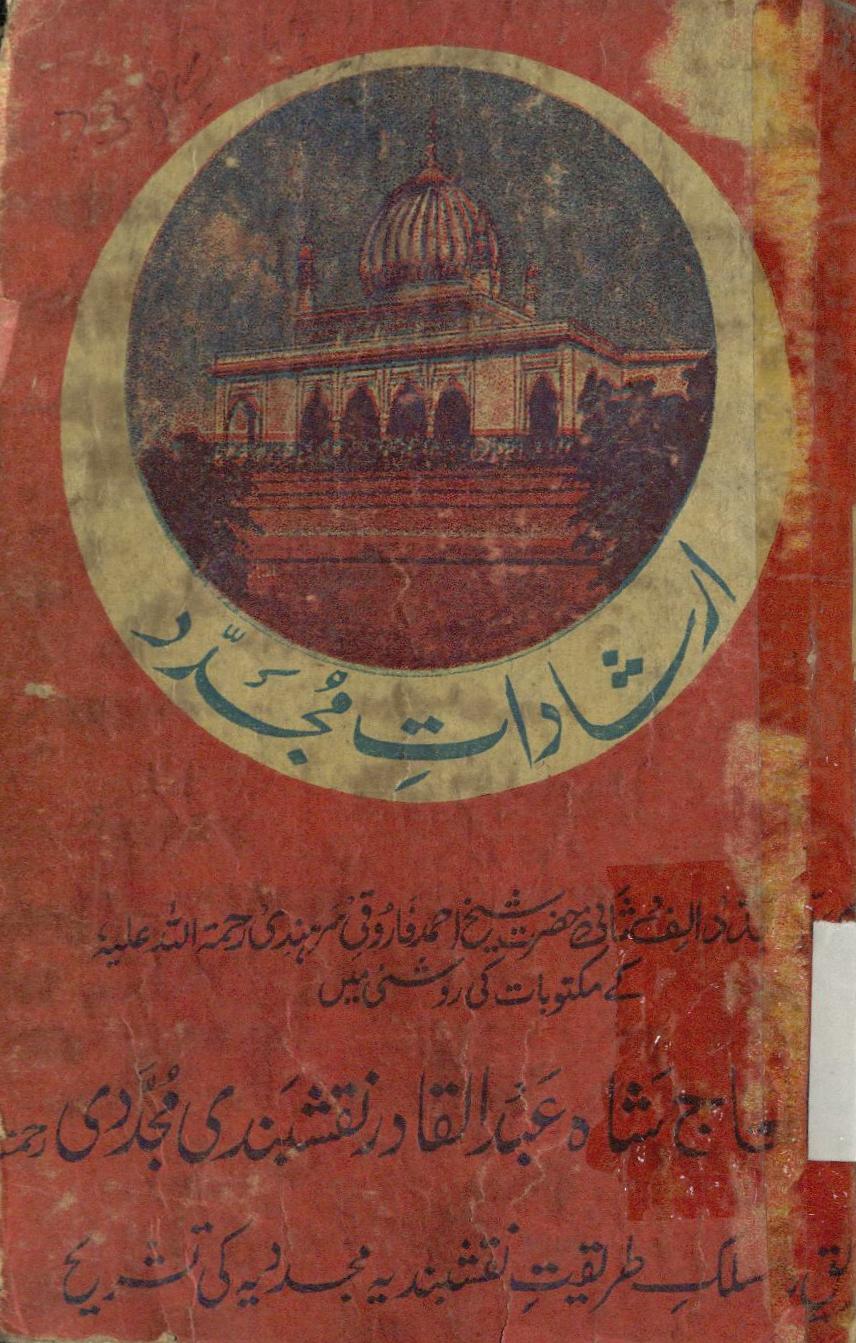 ارشاداتِ مُجَدِّد
الفِ ثانی حضرت شیخ احمد فاروقی سرہندی رحمۃ اللہ علیہ
کے مکتوبات کی روشنی میں
شاہ عَبدالقادر نقشبَندی مُجَدَّدی
طریقتِ نقشبندیہ مجددیہ کی تشریح